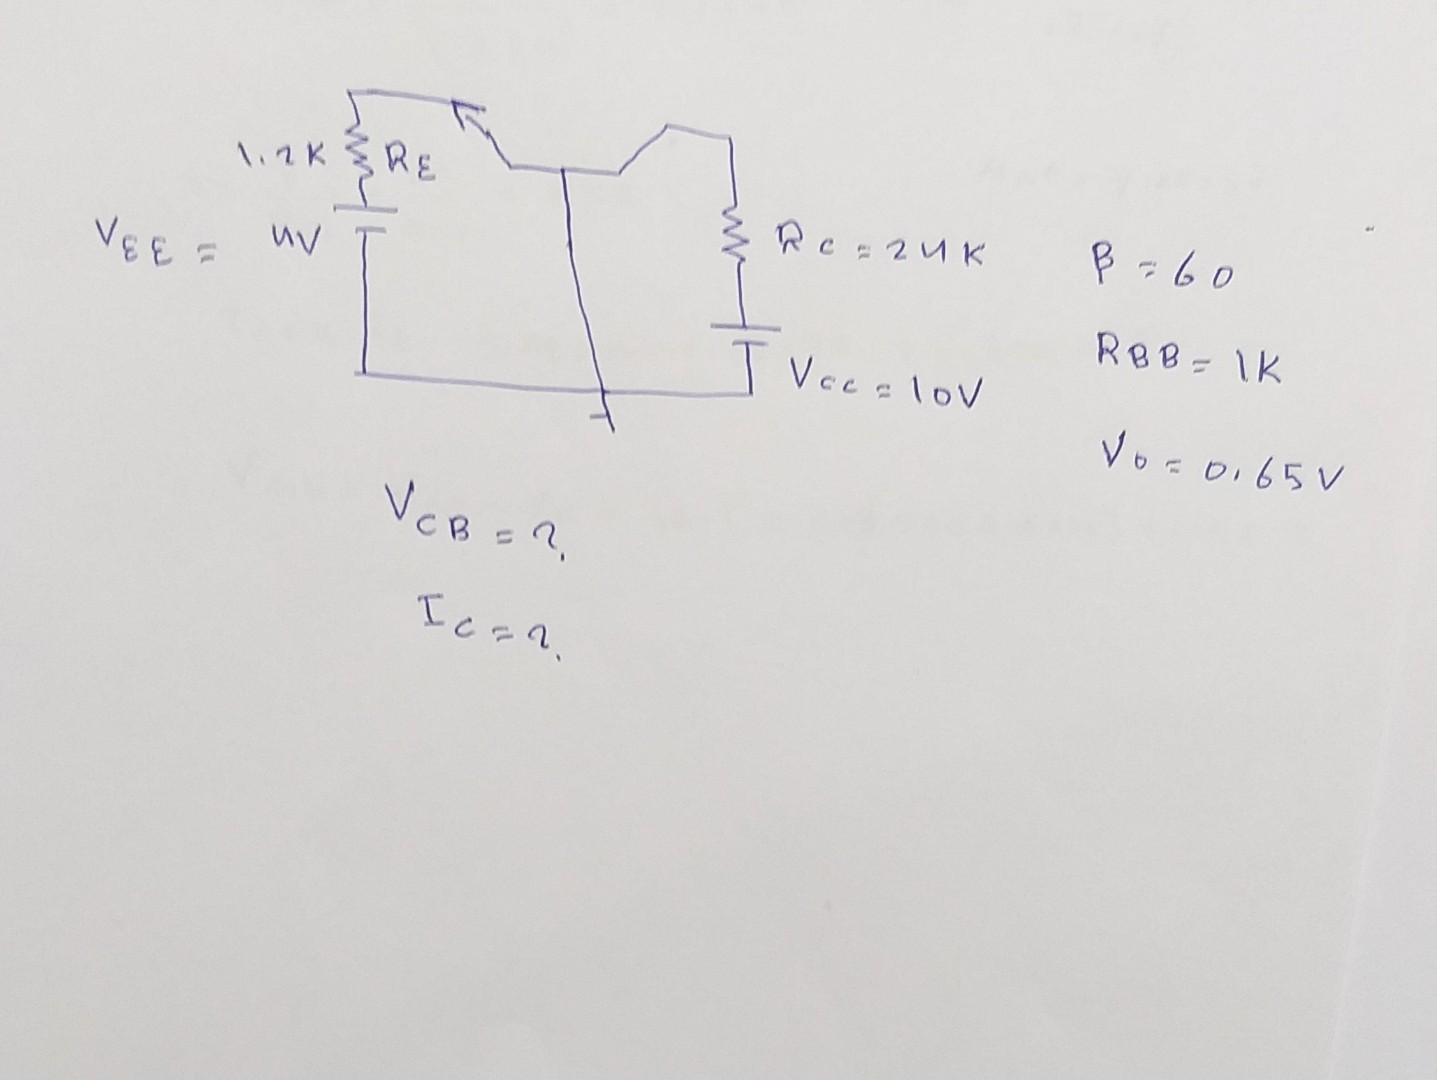 1.2K RE
VEE = 4V
RC = 24K
VCC = 10V
β = 60
RBB = 1K
V0 = 0.65V
VCB = ?
IC = ?